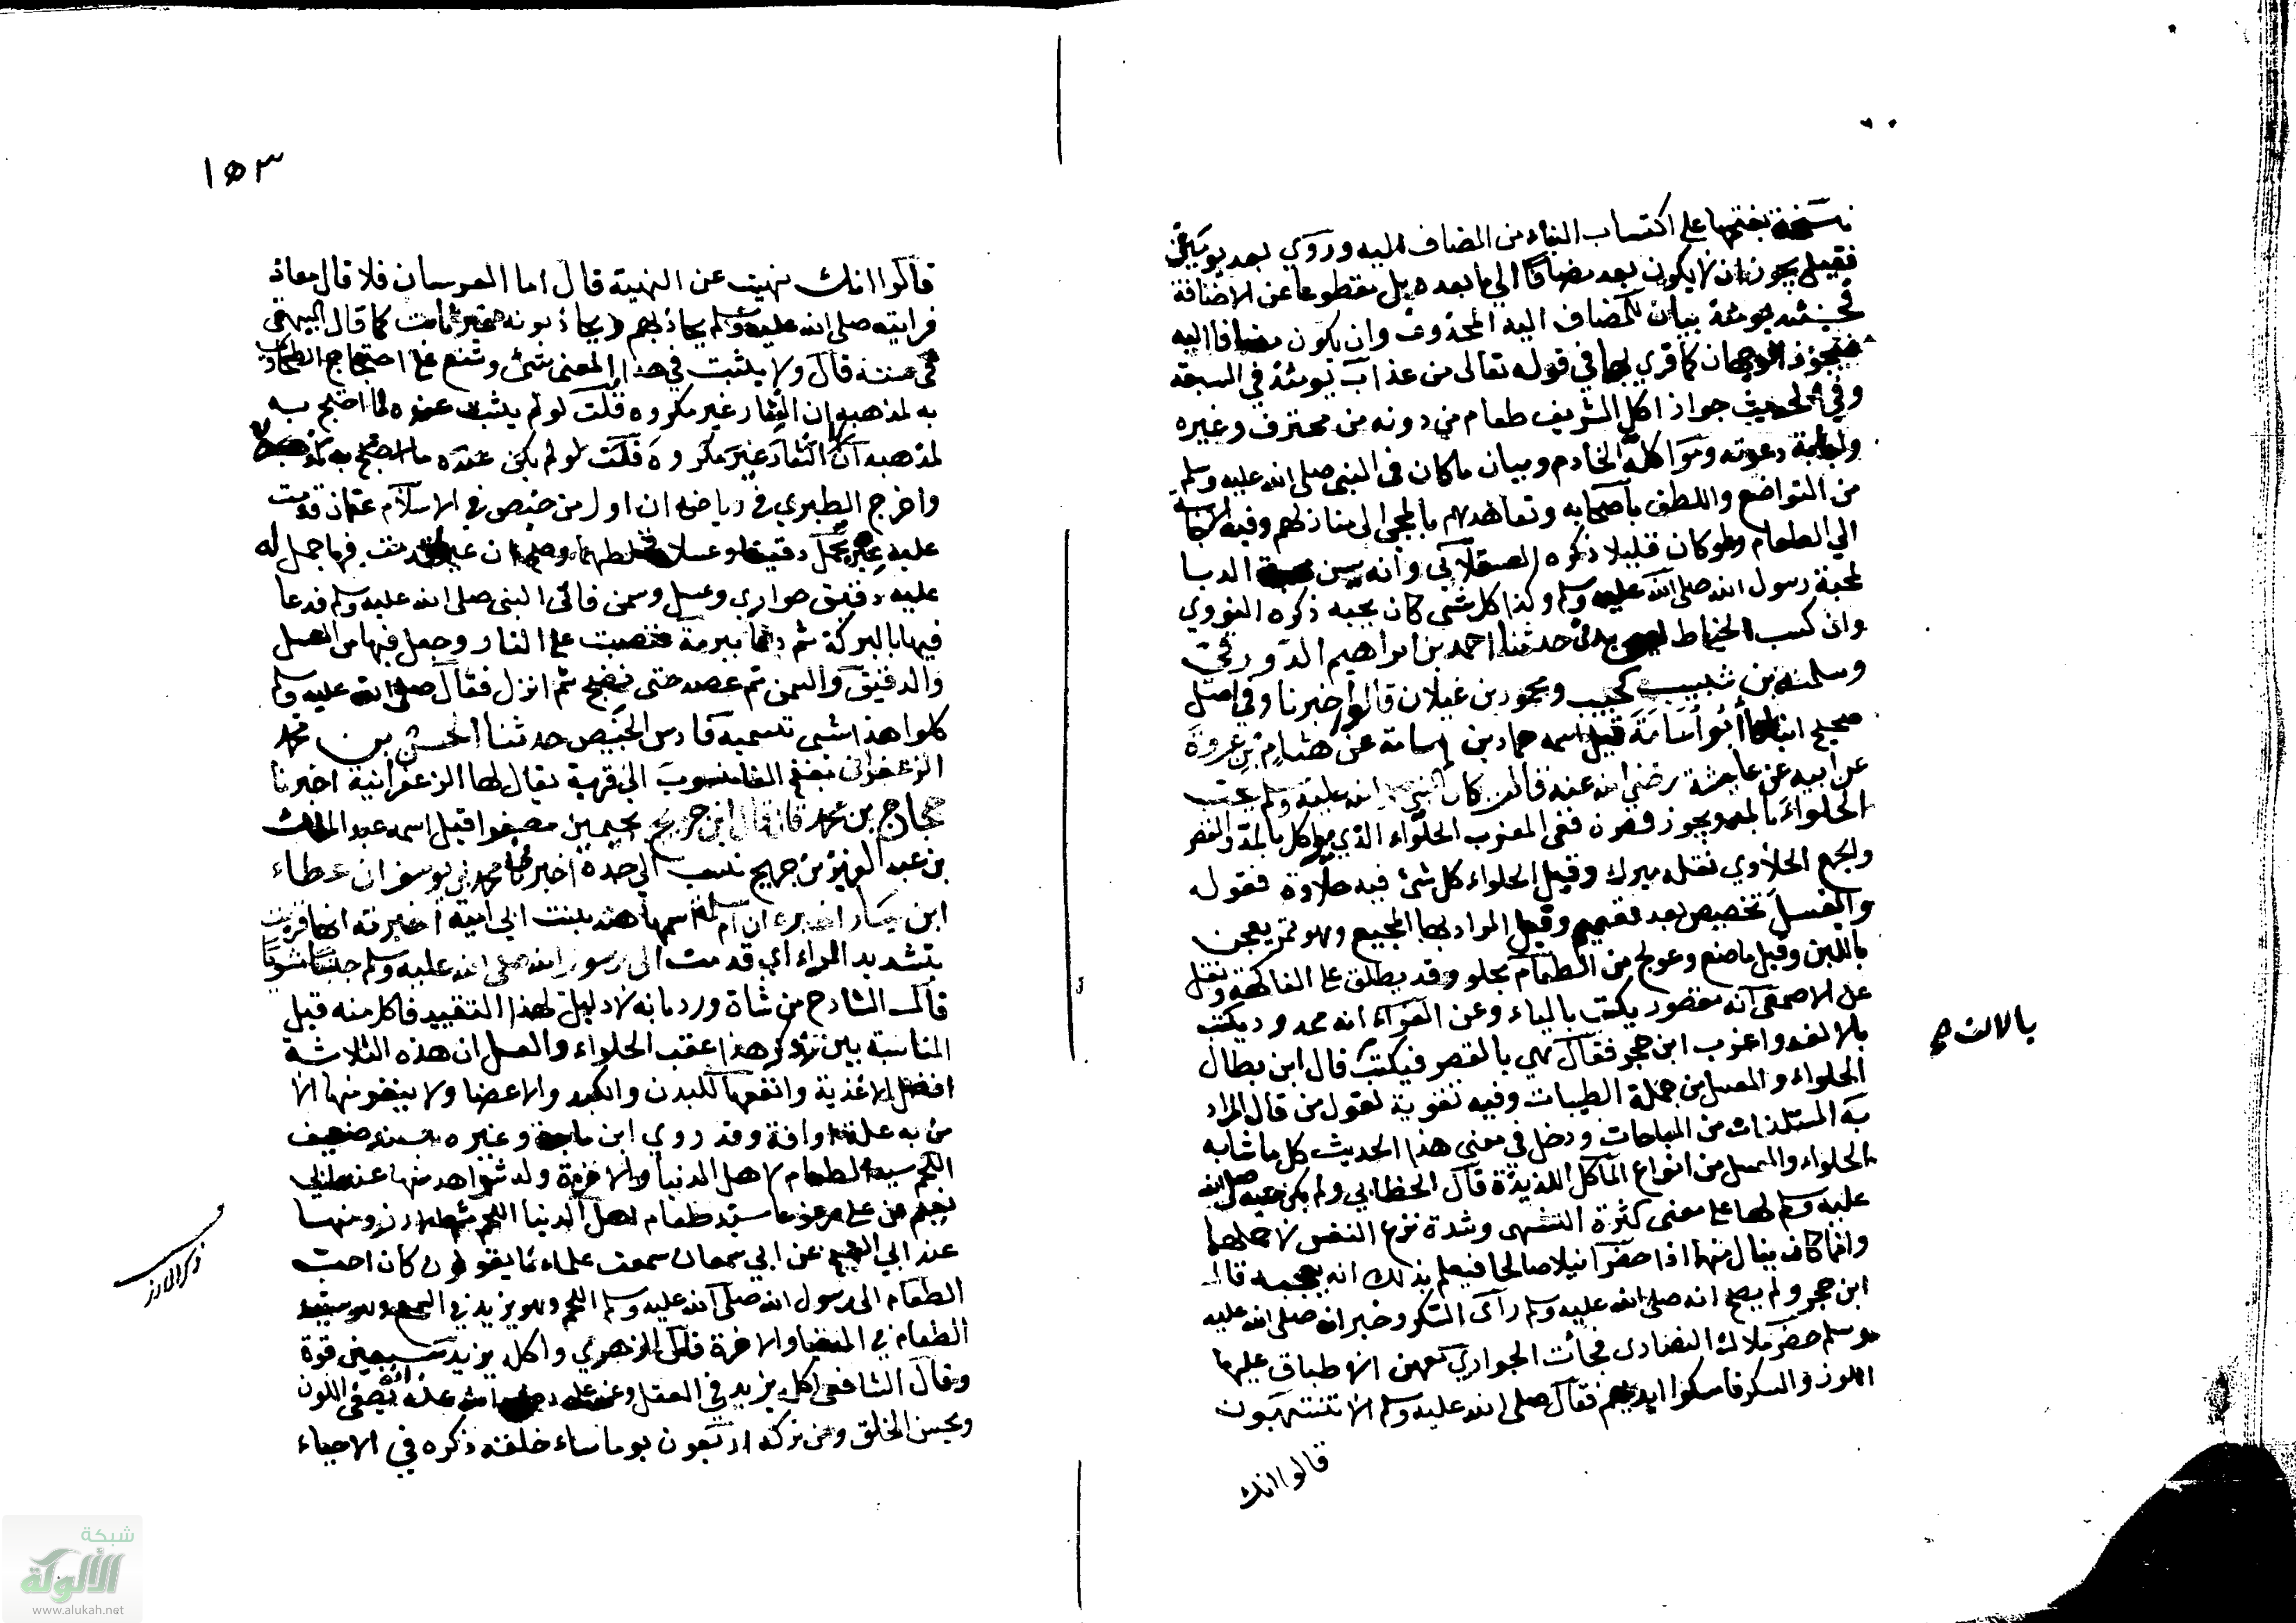 نسخة بفتحها على اكتساب البناء من المضاف اليه وروي بعد يومئذ
فقيل يجوز ان لا يكون بعد مضافا الى ما بعده بل مقطوعا عن الاضافة
فحينئذ يومئذ بيان للمضاف اليه المحذوف وان يكون مضافا اليه
فيجوز الوجهان كما قرئ بهما في قوله تعالى من عذاب يومئذ في السبعة
وفي الحديث جواز اكل الشريف طعام من دونه من محترف وغيره
واجابة دعوته ومواكلة الخادم وبيان ما كان في النبي صلى الله عليه وسلم
من التواضع واللطف باصحابه وتعاهدهم بالمجي الى منازلهم وفيه الاجابة
الى الطعام ولو كان قليلا ذكره العسقلاني وانه يسن محبة الدبا
لمحبة رسول الله صلى الله عليه وسلم وكذا كل شي كان يحبه ذكره النووي
وان كسب الخياط ليس بدني حدثنا احمد بن ابراهيم الدورقي
وسلمة بن شبيب كحبيب ومحمود بن غيلان قالوا اخبرنا وفي اصل
صحيح انبانا ابو اسامة قيل اسمه حماد بن اسامة عن هشام بن عروة
عن ابيه عن عايشة رضي الله عنه قالت كان النبي صلى الله عليه وسلم يحب
الحلواء بالمد ويجوز قصره ففي المغرب الحلواء الذي يوكل بالمد والقصر
والجمع الحلاوي نقله ميرك وقيل الحلواء كل شئ فيه حلاوة فقوله
والعسل تخصيص بعد تعميم وقيل المراد بها المجيع وهو تمر يعجن
باللبن وقيل ما صنع وعولج من الطعام بحلو وقد يطلق على الفاكهة ونقل
عن الاصمعي انه مقصور يكتب بالياء وعن الفراء انه ممدود يكتب
بالالف واغرب ابن حجر فقال هي بالقصر فيكتب قال ابن بطال
بالالف صح
الحلواء والعسل من جملة الطيبات وفيه تقوية لقول من قال المراد
به المستلذات من المباحات ودخل في معنى هذا الحديث كل ما شابه
الحلواء والعسل من انواع المآكل اللذيذة قال الخطابي ولم يكن حبه صلى الله
عليه وسلم لها على معنى كثرة التشهي وشدة نزع النفس لاجلها
وانما كان ينال منها اذا حضرا نيلا صالحا فيعلم بذلك انه يعجبه قال
ابن حجر ولم يصح انه صلى الله عليه وسلم رآى السكر وخبر انه صلى الله عليه
وسلم حضر ملاك انصاري فجأت الجواري معهن الاطباق عليها
اللوز والسكر فامسكوا ايديهم فقال صلى الله عليه وسلم الا تنتهبون
قالوا انك
١٥٣
قالوا انك نهيت عن النهبة قال اما العرسان فلا قال معاذ
فرايته صلى الله عليه وسلم يجاذبهم ويجاذبونه غير ثابت كما قال البيهقي
في سننه قال ولا يثبت في هذا المعنى شئ وشنع على احتجاج الطحاوي
به لمذهبه ان النثار غير مكروه قلت لو لم يثبت عنده لما احتج به
لمذهبه ان النثار غير مكروه قلت لو لم يكن عنده ما احتج به
واخرج الطبري في رياضه ان اول من خبص في الاسلام عثمان قدمت
عليه عير تحمل دقيقا وعسلا فخلطهما وصح ان عير قدمت فيها جمل له
عليه دقيق حواري وعسل وسمن فاتى النبي صلى الله عليه وسلم فدعا
فيها بالبركة ثم دعا ببرمة فنصبت على النار وجعل فيها من العسل
والدقيق والسمن ثم عصد حتى نضج ثم انزل فقال صلى الله عليه وسلم
كلوا هذا شي تسميه فارس الخبيص حدثنا الحسن بن محمد
الزعفراني بفتح الفا منسوب الى قرية يقال لها الزعفرانية اخبرنا
حجاج بن محمد قال قال ابن جريج بجيمين مصغرا قيل اسمه عبد الملك
بن عبد العزيز بن جريج نسب الى جده اخبرنا محمد بن يوسف ان عطاء
ابن يسار اخبره ان ام سلمة اسمها هند بنت ابي امية اخبرته انها قربت
بتشديد الراء اي قدمت الى رسول الله صلى الله عليه وسلم جنبا مشويا
قال الشارح من شاة ورد بانه لا دليل لهذا التقييد فاكل منه قيل
المناسبة بين ذكر هذا عقب الحلواء والعسل ان هذه الثلاثة
افضل الاغذية وانفعها للبدن والكبد والاعضا ولا ينفر منها الا
من به علة او افة وقد روي ابن ماجة وغيره بسند ضعيف
اللحم سيد الطعام لاهل الدنيا والاخرة وله شواهد منها عند ابي
نعيم عن علي مرفوعا سيد طعام اهل الدنيا اللحم ثم الارز ومنها
ذكر الارز
عند ابي الشيخ عن ابي سمعان سمعت علماءنا يقولون كان احب
الطعام الى رسول الله صلى الله عليه وسلم اللحم وهو يزيد في السمع وهو سيد
الطعام في الدنيا والاخرة قال الزهري واكله يزيد سبعين قوة
وقال الشافعي اكله يزيد في العقل وعن علي رضي الله عنه انه يصفي اللون
ويحسن الخلق ومن تركه اربعون يوما ساء خلقه ذكره في الاحياء
شبكة
الألوكة
www.alukah.net